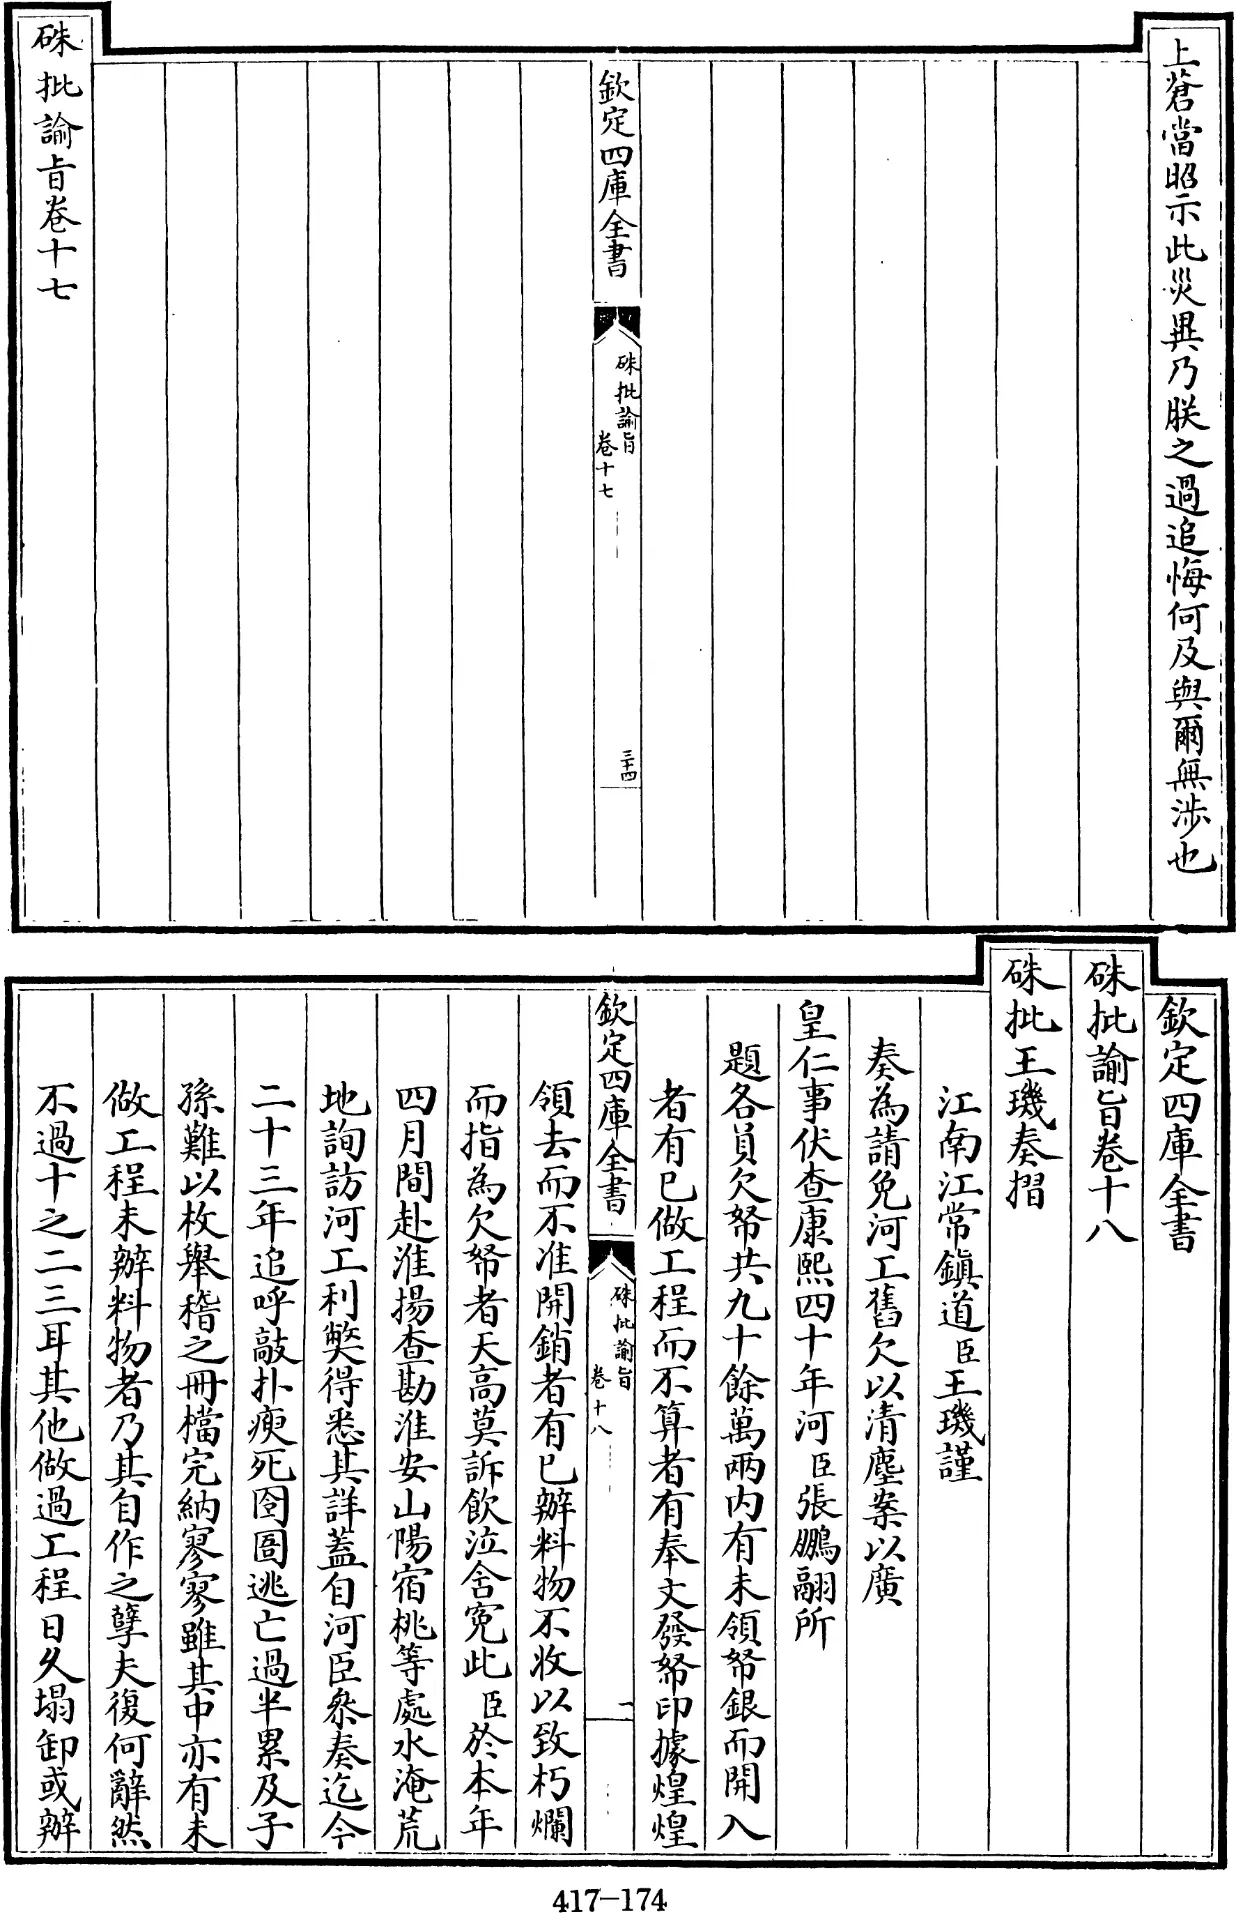 上蒼當昭示此災異乃朕之過追悔何及與爾無涉也
欽定四庫全書
硃批諭旨
卷十七
三十四
硃批諭旨卷十七
欽定四庫全書
硃批諭旨卷十八
硃批王璣奏摺
江南江常鎮道臣王璣謹
奏為請免河工舊欠以清塵案以廣
皇仁事伏查康熙四十年河臣張鵬翮所
題各員欠帑共九十餘萬兩內有未領帑銀而開入
者有已做工程而不算者有奉文發帑印據煌煌
欽定四庫全書
硃批諭旨
卷十八
一
領去而不准開銷者有已辦料物不收以致朽爛
而指為欠帑者天高莫訴飲泣含冤此臣於本年
四月間赴淮揚查勘淮安山陽宿桃等處水淹荒
地詢訪河工利獘得悉其詳蓋自河臣叅奏迄今
二十三年追呼敲扑瘐死囹圄逃亡過半累及子
孫難以枚舉稽之冊檔完納寥寥雖其中亦有未
做工程未辦料物者乃其自作之孽夫復何辭然
不過十之二三耳其他做過工程日久塌卸或辦
417-174